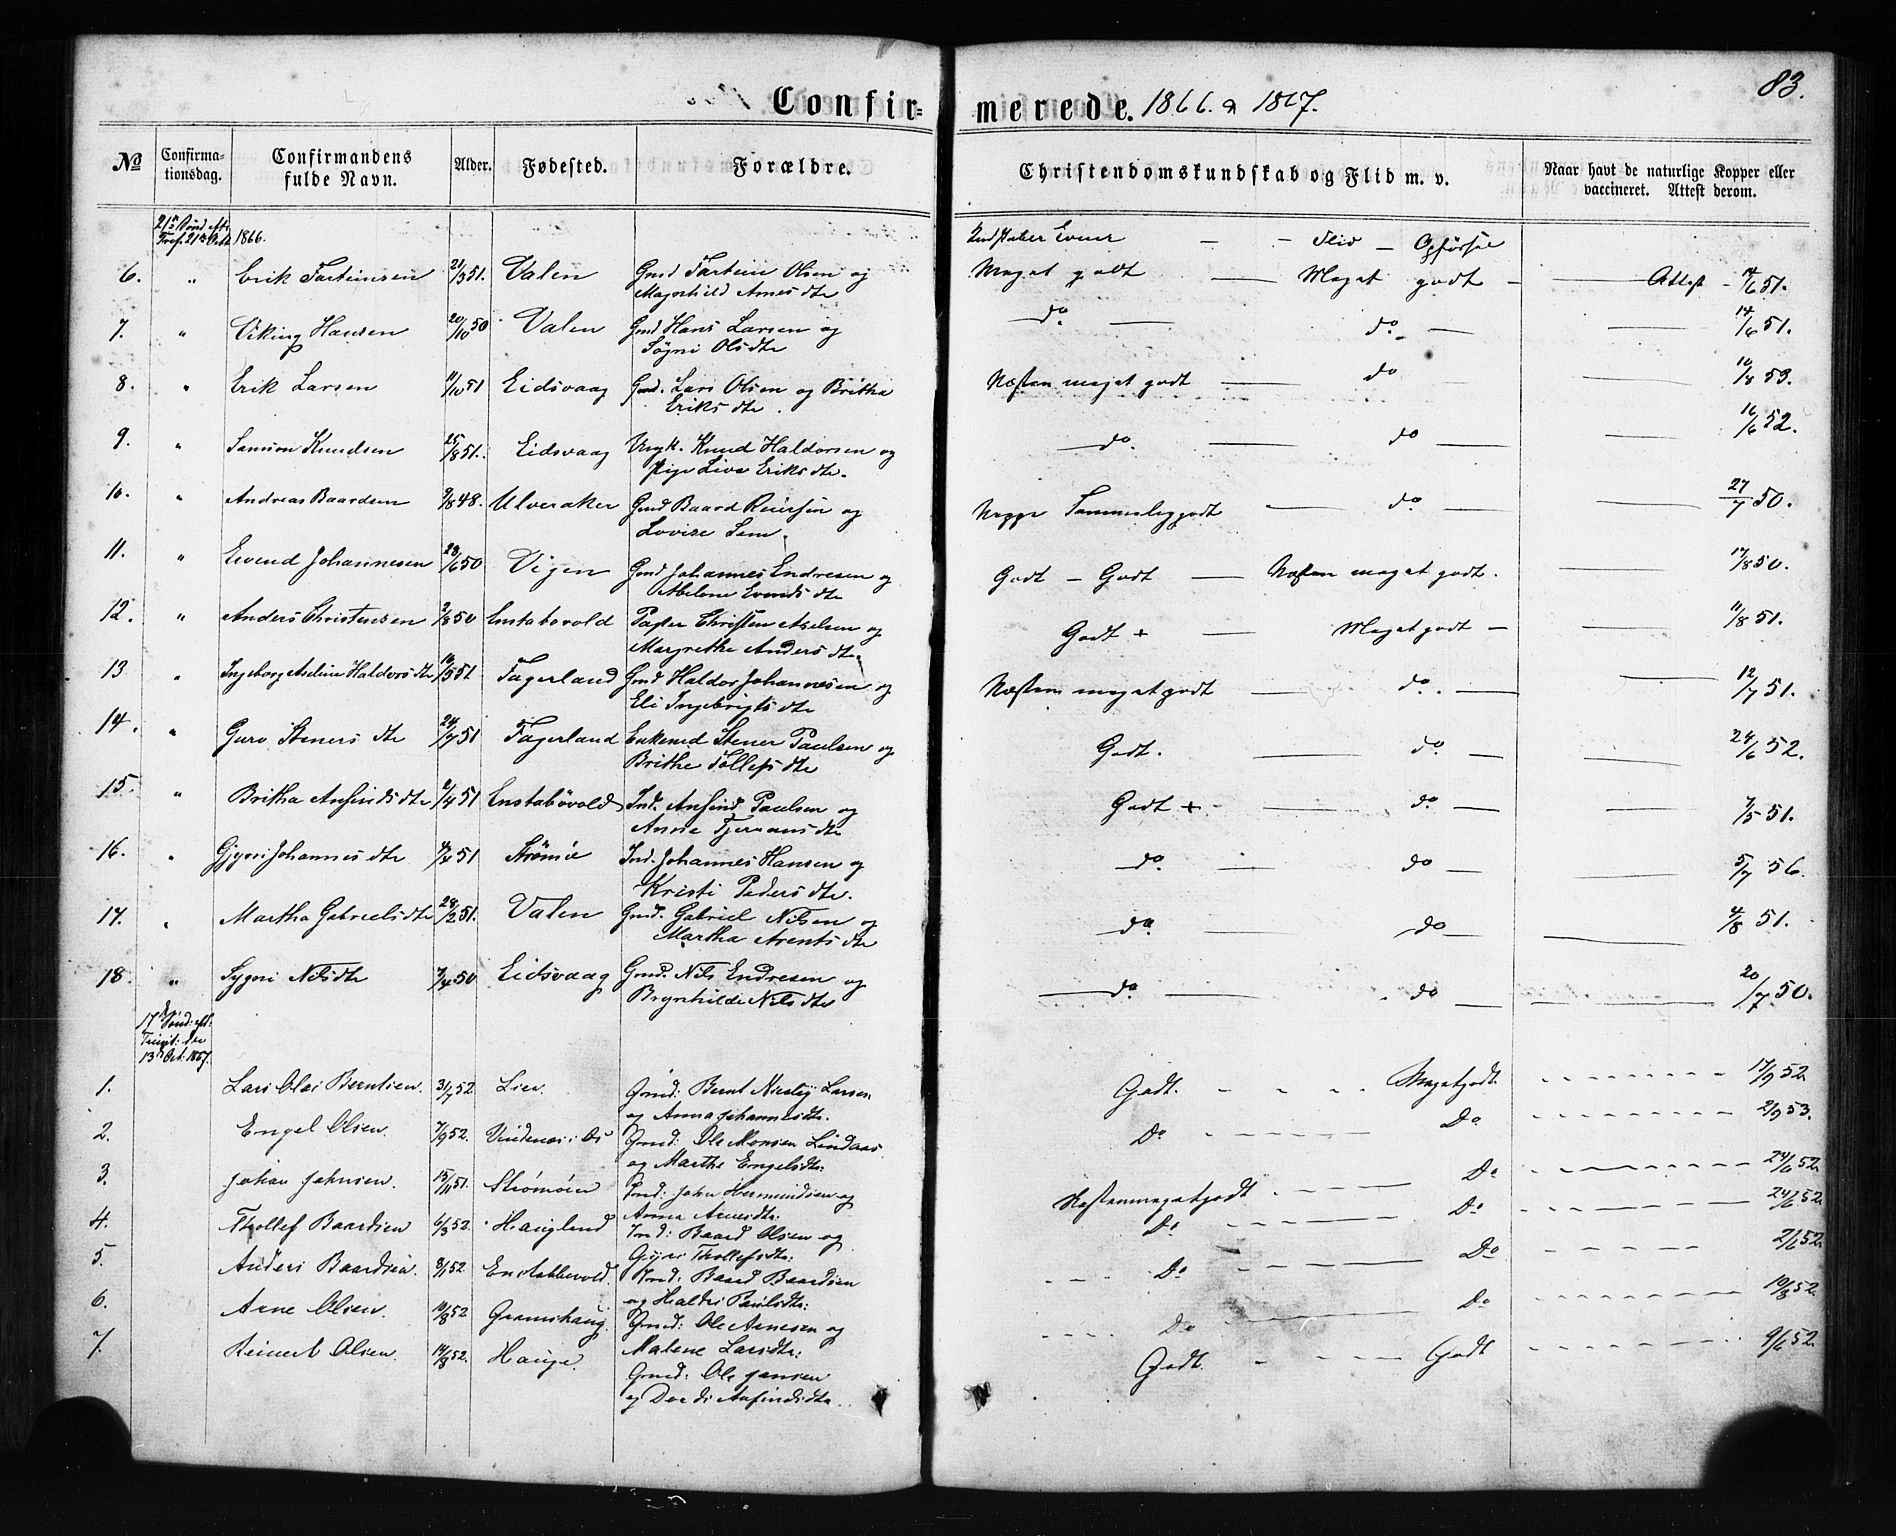 83.
Confirmerede. 1866. & 1867.
No Confirmationsdag. Confirmandens fulde Navn. Alder. Fødested. Forældre. Christendomskundskab og Flid m. v. Naar havt de naturlige Kopper eller vaccineret. Attest derom.
1866. Evner — - Flid — Opførsel
6. " Erik Torteinsen 21/3 51. Valen Gmd Tortein Olsen og Magnhild Arnesdtr Meget godt — Meget godt — Attest - 14/6 51.
7. " Viking Hansen 20/10 50 Valen Gmd Hans Larsen og Søgni Olsdtr do — do — 14/6 51.
8. " Erik Larsen 11/10 51 Eidsvaag Gmd. Lars Olsen og Britha Eriksdtr. Næsten meget godt — do — 10/8 53.
9. " Samson Knudsen 25/8 51. Eidsvaag Ungk. Knud Haldorsen og Pige Liva Eriksdtr. do. — do — 16/6 52.
10. " Andreas Baardsen 9/8 48. Ulveraker Gmd Baard Reiersen og Lovise Sem. Neppe Temmelig godt — do — 27/7 50.
11. " Eivend Johannesen 28/6 50 Vigen Gmd Johannes Endresen og Abelone Evendsdtr Godt - Godt — Næsten meget godt. — 17/8 50.
12. " Anders Christensen 2/8 50 Enstabovold Christen Axelsen og Margrethe Andersdtr. Godt + — Meget godt — 11/8 51.
13 " Ingeborg Axeline Haldorsdtr 16/5 51 Fagerland Gmd Haldor Johannesen og Eli Ingebrigtsdtr Næsten meget godt — do. — 12/7 51.
14. " Guro Stenersdtr 24/7 51 Fagerland Enkemd Stener Paulsen og Brithe Tollefsdtr Godt. — do. — 24/6 52.
15. " Britha Anfindsdtr 2/4 51 Enstabövold Ind. Anfind Paulsen og Anne Tjeransdtr Godt + — do — 7/5 51.
16. " Gjyri Johannesdtr 4/4 51 Strömöe Ind. Johannes Hansen og Kristi Pedersdtr. do — do — 5/7 56.
17. " Martha Gabrielsdtr 28/2 51. Valen Gmd. Gabriel Nilsen og Martha Arentsdtr do. — do — 4/8 51.
18. " Sygni Nilsdtr 7/4 50 Eidsvaag Gmd. Nils Endresen og Brynhilde Nilsdtr do. — do — 20/7 50.
17 Sönd: eft: Trinit: den 13de Oct. 1867.
1. Lars Olai Berntsen. 31/7 52 Lien. Gmd: Bernt Larsen og Anna Johannesdtr. Godt. - - - Megetgodt. - - - 17/9 52
2. Engel Olsen. 7/9 52. Vindenæs i Os Gmd: Ole Monsen Lindaas og Marthe Engelsdtr: Do - - - Do - - - 2/9 53.
3. Johan Johnsen. 15/11 51. Strömöen Ind: John Hermundsen og Anna Arnesdtr: Næstenmegetgodt. - - - Do - - - 24/6 52.
4. Thollef Baardsen 6/3 52. Haugland Ind: Baard Olsen og Gjyri Thollefsdtr: Do - - - Do - - - 24/6 52.
5. Anders Baardsen. 8/1 52. Enstabbevold. Ind: Baard Baardsen og Haldis Paulsdtr: Do - - - Do - - - 2/6 52.
6. Arne Olsen. 10/8 52. Grønshaug. Gmd: Ole Arnesen og Malene Larsdtr: Do - - - Do - - - 10/8 52.
7. Reinert Olsen. 14/8 52. Hauge. Gmd: Ole Jansen og Dordi Anfindsdtr. Godt. - - - Godt - - - 9/6 52.